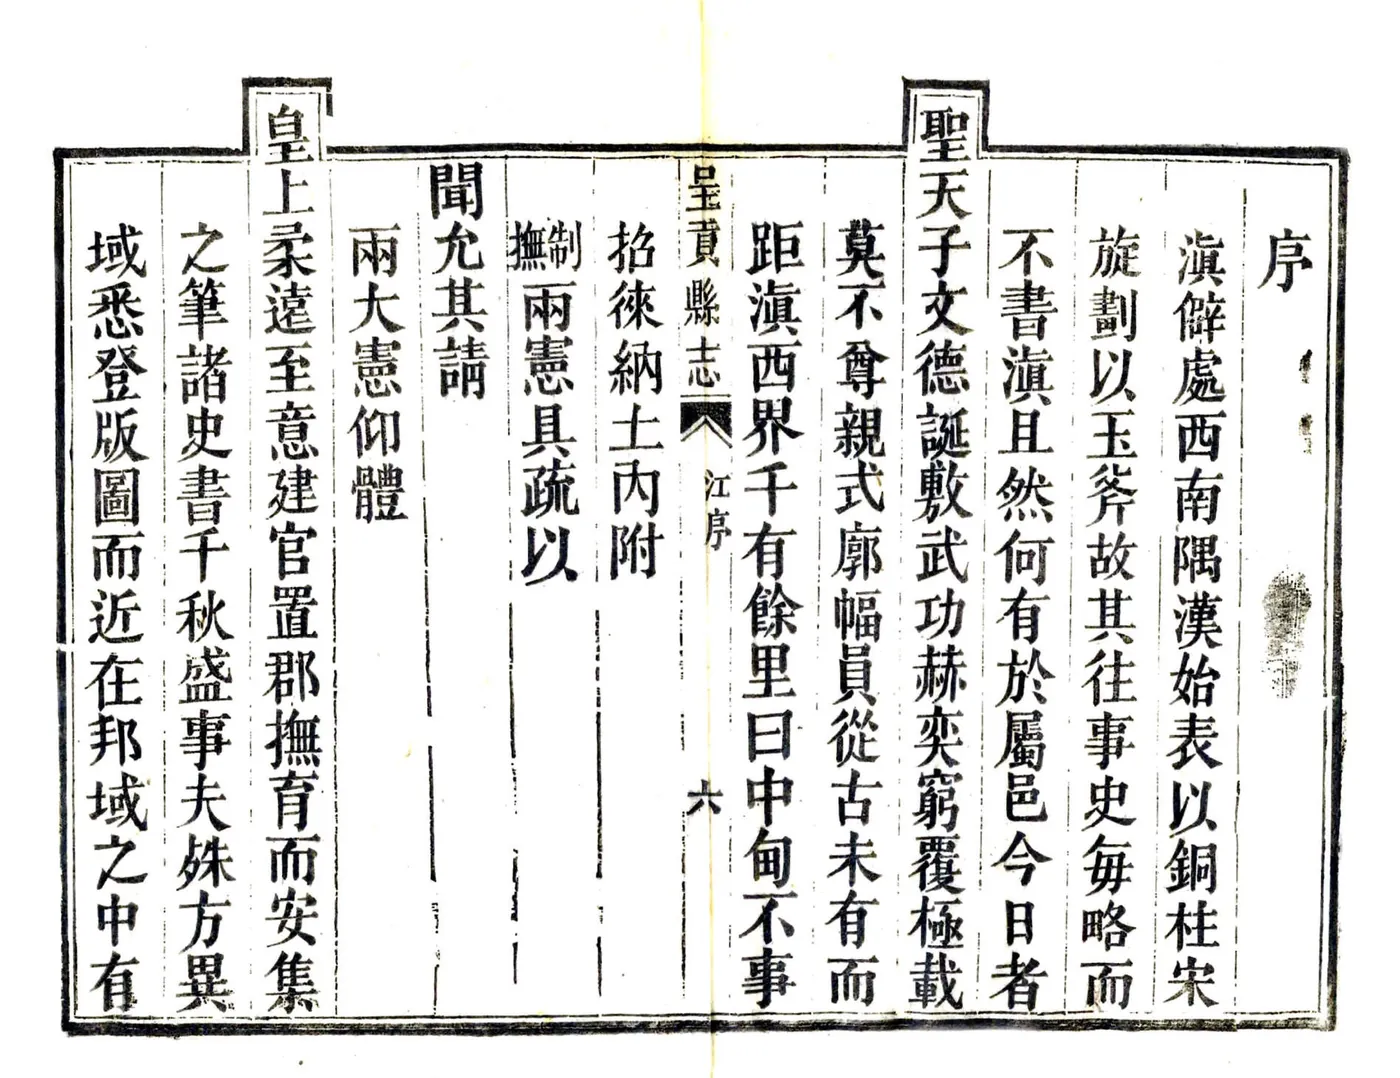 序
滇僻處西南隅漢始表以銅柱宋
旋劃以玉斧故其往事史每略而
不書滇且然何有於屬邑今日者
聖天子文德誕敷武功赫奕窮覆極載
莫不尊親式廓幅員從古未有而
距滇西界千有餘里曰中甸不事
招徠納土內附
呈貢縣志
江序
六
制撫兩憲具疏以
聞允其請
兩大憲仰體
皇上柔遠至意建官置郡撫育而安集
之筆諸史書千秋盛事夫殊方異
域悉登版圖而近在邦域之中有